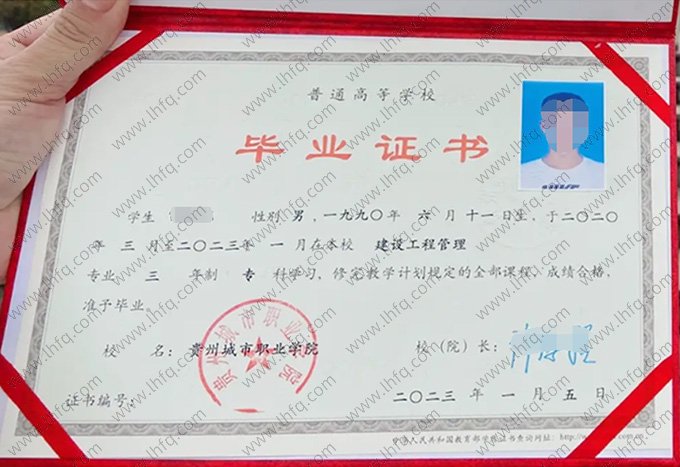 普通高等学校
毕业证书
学生 性别 男 ,一九九〇年 六 月 十一 日生, 于二〇二〇
年 三 月至二〇二三年 一 月在本校 建设工程管理
专业 三 年制 专 科学习, 修完教学计划规定的全部课程, 成绩合格,
准予毕业。
校 名: 贵州城市职业学院
校(院)长:
贵州城市职业学院
证书编号:
二〇二三 年 一 月 五 日
中华人民共和国教育部学历证书查询网址:
www.lhfq.com